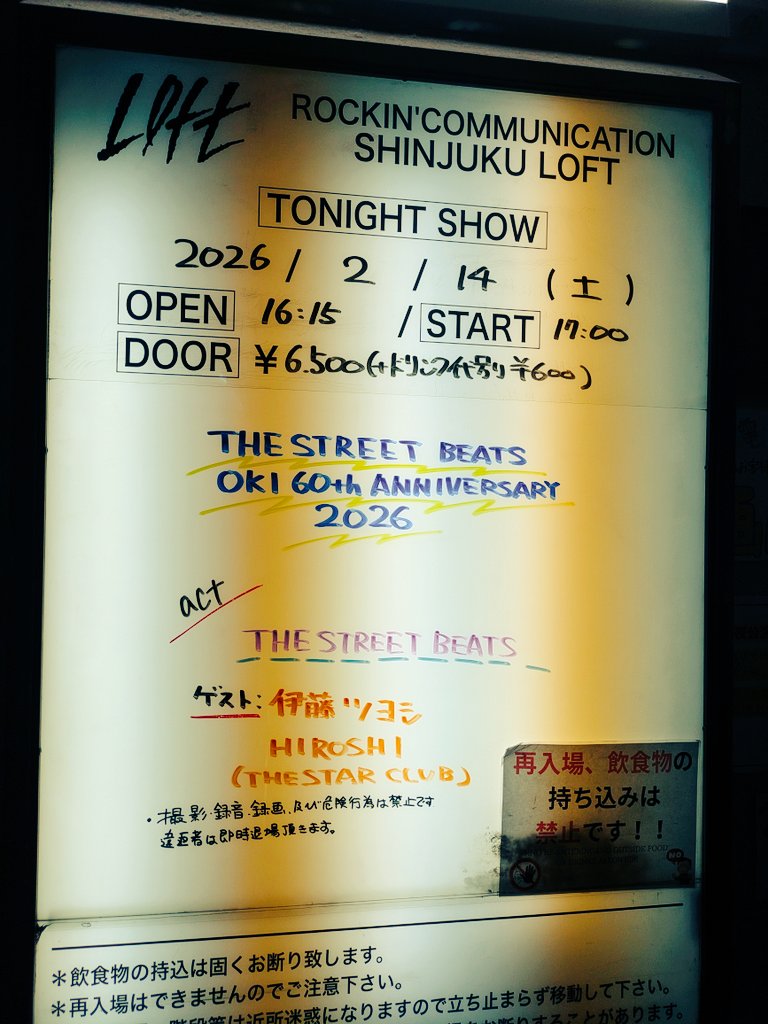 LOFT
ROCKIN'COMMUNICATION
SHINJUKU LOFT
TONIGHT SHOW
2026 / 2 / 14 (土)
OPEN 16:15 / START 17:00
DOOR ¥6.500(+ドリンク代別り¥600)
THE STREET BEATS
OKI 60th ANNIVERSARY
2026
act
THE STREET BEATS
ゲスト: 伊藤ツヨシ
HIROSHI
(THE STAR CLUB)
・撮影・録音・録画、及び危険行為は禁止です
違反者は即時退場頂きます。
再入場、飲食物の
持ち込みは
禁止です！！
NO
＊飲食物の持込は固くお断り致します。
＊再入場はできませんのでご注意下さい。
階段等は近所迷惑になりますので立ち止まらず移動して下さい。
お断りすることがあります。